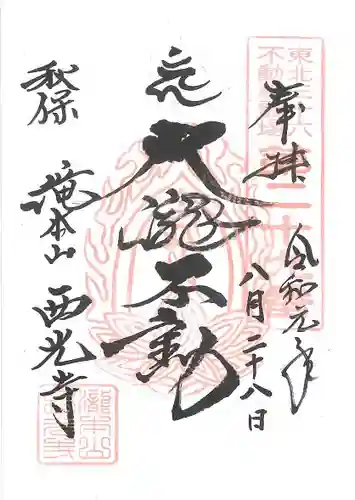 奉拝
令和元年
八月二十八日
大瀧不動
秋保
滝本山
西光寺
東北三十六
不動尊霊場